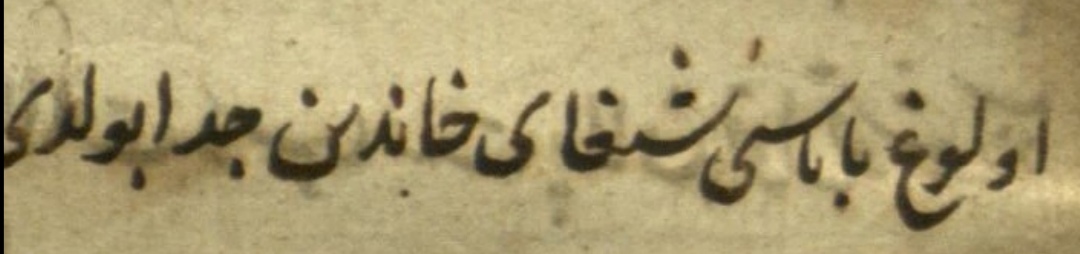 اولوغ باباسی شیغای خاندین جدا بولدی